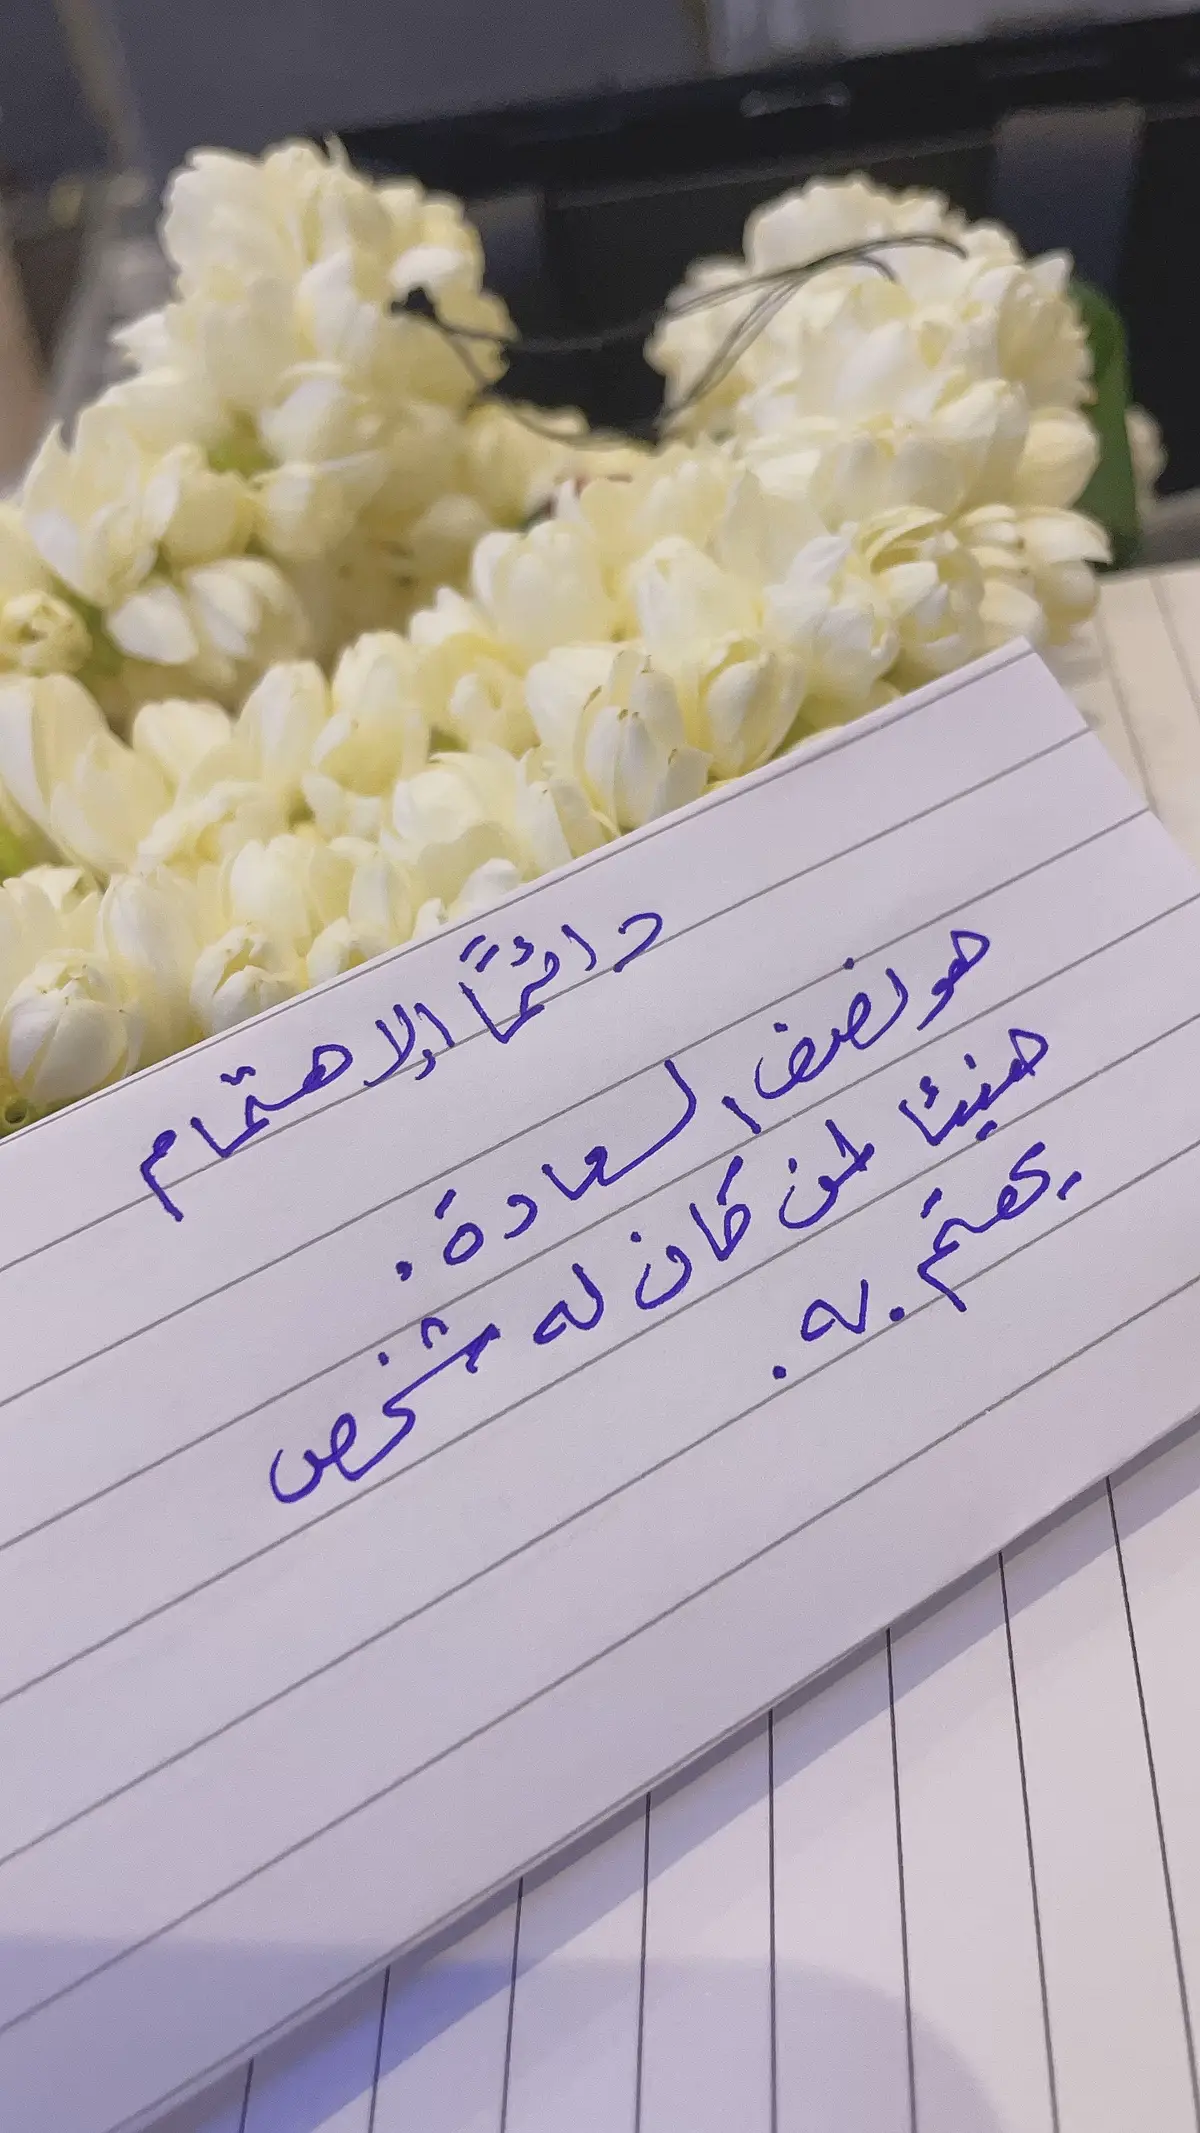 دائمًا الاهتمام
هو نصف السعادة.
هنيئا لمن كان له شخص
يهتم به.